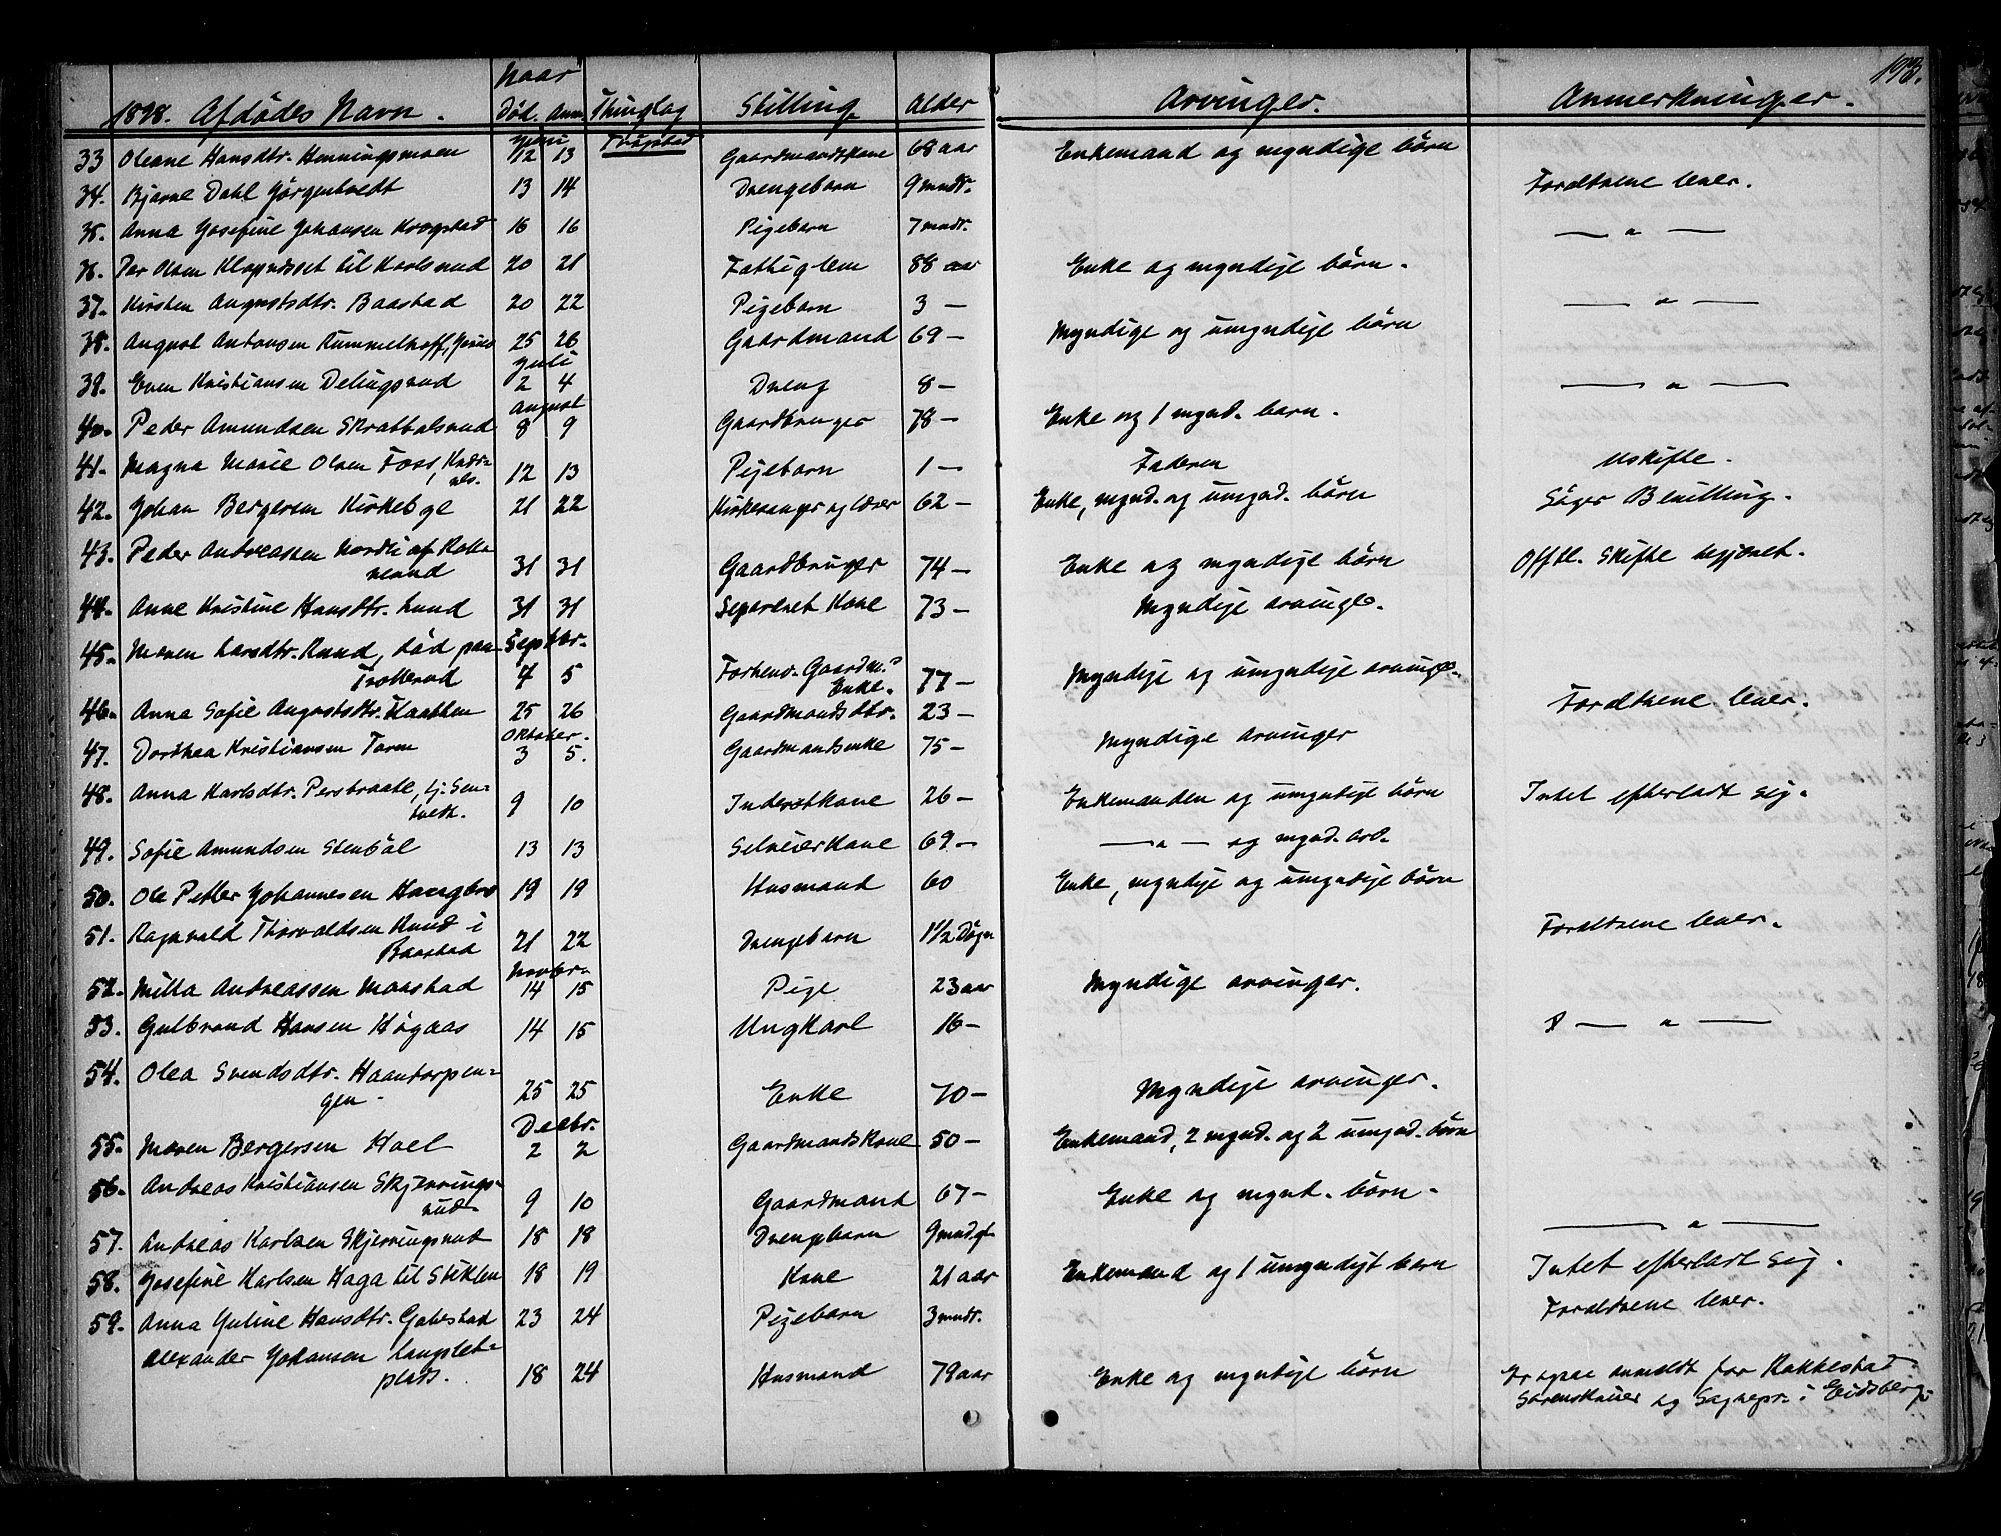 193.
1898. Afdødes Navn. Naar Død. Anm. Thinglag Stilling Alder Arvinger. Anmerkninger.
Juni Thrøgstad
33 Oleane Hansdtr. Henningsmoen 12 13 Gaardmandskone 68 aar Enkemand og myndige børn
34. Bjarne Dahl Jørgentvedt 13 14 Drengebarn 9 mndr. Forældrene lever.
35. Anna Josefine Johansen Krogstad 16 16 Pigebarn 7 mndr. — " —
36. Per Olsen Klopudset til Karlsrud 20 21 Fattiglem 88 aar Enke og myndige børn.
37. Kirsten Augustsdtr. Baastad 20 22 Pigebarn 3 — — " —
38. August Antonsen Rummelhoff, 25 26 Gaardmand 69 — Myndige og umyndige børn
Juli
39. Even Kristiansen Delingsrud 2 4 Dreng 8 — — " —
August
40. Peder Amundsen Skratbalsrud 8 9 Gaardbruger 78 — Enke og 1 mynd. barn.
41. Magna Marie Olsen Foss, 12 13 Pigebarn 1 — Faderen Uskifte.
42. Johan Bergersen Kirkebye 21 22 Kirkesanger og lærer 62 — Enke, mynd. og umynd. børn Søger Bevilling.
43. Peder Andreassen Nordli af Kolle-
nerud 31 31 Gaardbruger 74 — Enke og myndige børn Offtl. Skifte begjæret.
44. Anne Kristine Hansdtr. Lund 31 31 Separeret Kone 73 — Myndige arvinge.
45. Maren Larsdtr. Rund, død paa Septbr.
Trollerud 4 5 Forhenv. Gaardm.s Enke. 77 — Myndige og umyndige arvinge.
46. Anna Sofie Augustsdtr. Kaatten 25 26 Gaardmandsdtr. 23 — Forældrene lever.
Oktober.
47. Dorthea Kristiansen Torm 3 5. Gaardmandsenke 75 — Myndige arvinger
48. Anna Karlsdtr. Persbraate, tj. Sen-
tvedt. 9 10 Inderstkone 26 — Enkemanden og umyndige børn Intet efterladt sig.
49. Sofie Amundsen Stenbøl 13 13 Selveierkone 69 — — " — og mynd. arv.
50. Ole Petter Johannesen Haugbro 19 19 Husmand 60 Enke, myndige og umyndige børn
51. Ragnvald Thorvaldsen Rund i
Baastad 21 22 Drengebarn 1 1/2 Døgn Forældrene lever.
Novbr.
52. Milla Andreassen Maastad 14 15 Pige 23 aar Myndige arvinger.
53. Gulbrand Hansen Høgaas 14 15 Ungkarl 16 — — " —
54. Olea Svendsdtr. Haantorpen-
gen. 25 25 Enke 70 — Myndige arvinger.
Decbr.
55. Maren Bergersen Hoel 2 2 Gaardmandskone 50 — Enkemand, 2 mynd. og 2 umynd. børn
56. Andreas Kristiansen Skjerrings-
rud 9 10 Gaardmand 67 — Enke og mynd. børn.
57. Andreas Karlsen Skjerringsrud 18 18 Drengebarn 9 mndgl. — " —
58. Josefine Karlsen Haga til Stiklen 18 19 Kone 21 aar Enkemand og 1 umyndigt barn Intet efterladt sig.
59. Anna Juline Hansdtr. Gabestad 23 24 Pigebarn 3 mndr. Forældrene lever.
Alexander Johansen Langslet-
plads. 18 24 Husmand 79 aar Enke og myndige børn Er ogsaa anmeldt for Rakkestad
Sorenskriver og Sognepr. i Eidsberg.